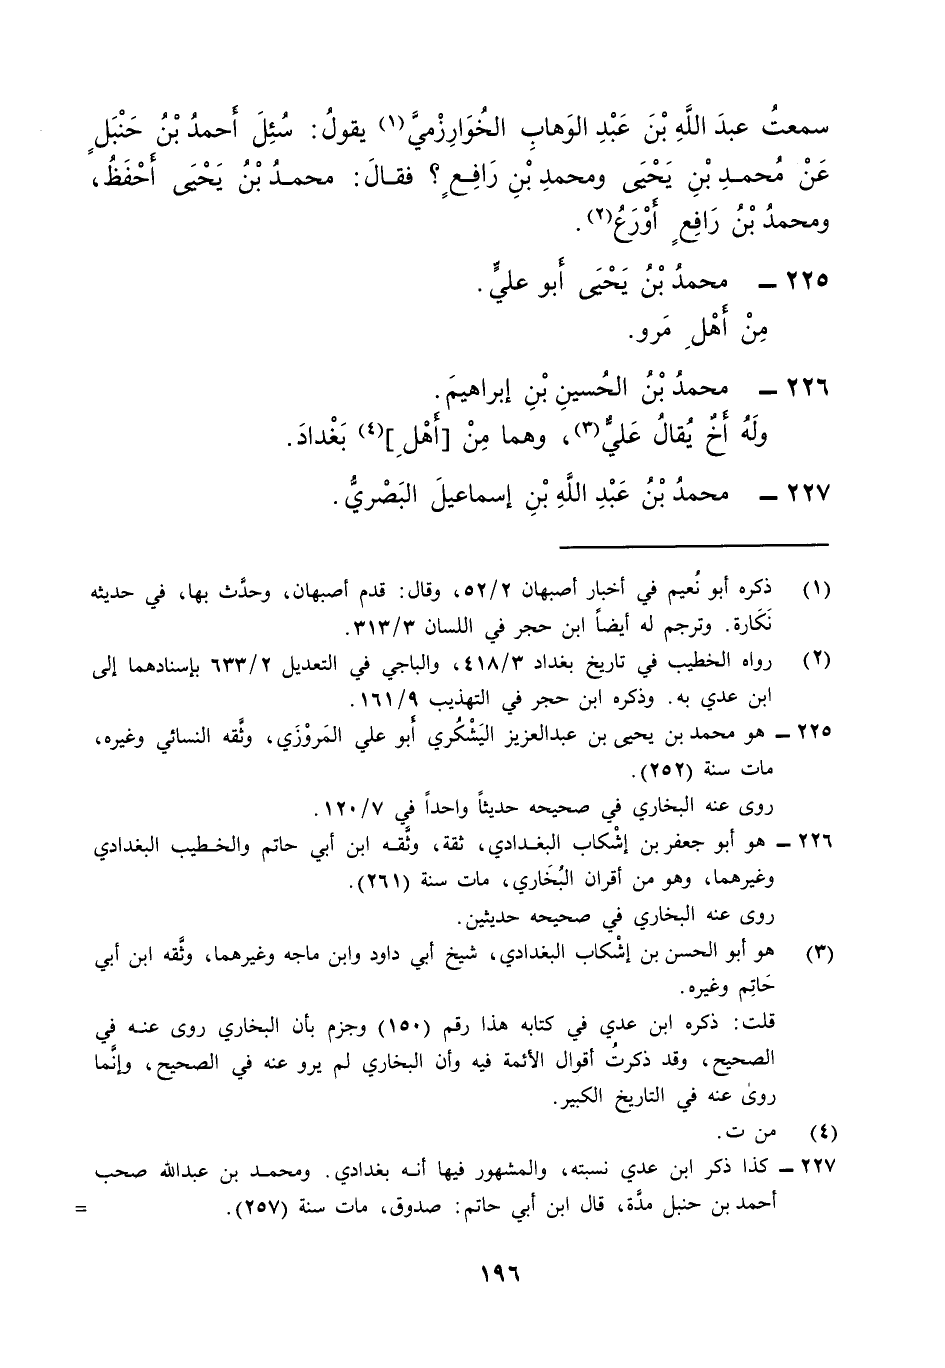 سمعتُ عبدَ اللَّهِ بْنَ عَبْدِ الوَهابِ الخُوَارِزْميَّ(١) يقولُ: سُئِلَ أَحمدُ بْنُ حَنْبَلٍ
عَنْ مُحمدِ بْنِ يَحْيَى ومحمدِ بْنِ رَافِعٍ؟ فقالَ: محمدُ بْنُ يَحْيَى أَحْفَظُ،
ومحمدُ بْنُ رَافِعٍ أَوْرَعُ(٢).
٢٢٥ ــ محمدُ بْنُ يَحْيَى أَبو عليٍّ.
مِنْ أَهْلِ مَرو.
٢٢٦ ــ محمدُ بْنُ الحُسينِ بْنِ إبراهيمَ.
ولَهُ أَخٌ يُقالُ عَليٌّ(٣)، وهما مِنْ [أَهْلِ](٤) بَغْدادَ.
٢٢٧ ــ محمدُ بْنُ عَبْدِ اللَّهِ بْنِ إسماعيلَ البَصْريُّ.
(١) ذكره أبو نُعيم في أخبار أصبهان ٥٢/٢، وقال: قدم أصبهان، وحدَّث بها، في حديثه
نَكَارة. وترجم له أيضاً ابن حجر في اللسان ٣١٣/٣.
(٢) رواه الخطيب في تاريخ بغداد ٤١٨/٣، والباجي في التعديل ٦٣٣/٢ بإسنادهما إلى
ابن عدي به. وذكره ابن حجر في التهذيب ١٦١/٩.
٢٢٥ ــ هو محمد بن يحيى بن عبدالعزيز اليَشْكُري أبو علي المَروْزَي، وثَّقه النسائي وغيره،
مات سنة (٢٥٢).
روى عنه البخاري في صحيحه حديثاً واحداً في ١٢٠/٧.
٢٢٦ ــ هو أبو جعفر بن إشْكاب البغدادي، ثقة، وثَّقه ابن أبي حاتم والخطيب البغدادي
وغيرهما، وهو من أقران البُخَاري، مات سنة (٢٦١).
روى عنه البخاري في صحيحه حديثين.
(٣) هو أبو الحسن بن إشْكاب البغدادي، شيخ أبي داود وابن ماجه وغيرهما، وثَّقه ابن أبي
حَاتِم وغيره.
قلت: ذكره ابن عدي في كتابه هذا رقم (١٥٠) وجزم بأن البخاري روى عنه في
الصحيح، وقد ذكرتُ أقوال الأئمة فيه وأن البخاري لم يرو عنه في الصحيح، وإنَّما
روىٰ عنه في التاريخ الكبير.
(٤) من ت.
٢٢٧ ــ كذا ذكر ابن عدي نسبته، والمشهور فيها أنه بغدادي. ومحمد بن عبدالله صحب
أحمد بن حنبل مدَّة، قال ابن أبي حاتم: صدوق، مات سنة (٢٥٧). =
١٩٦